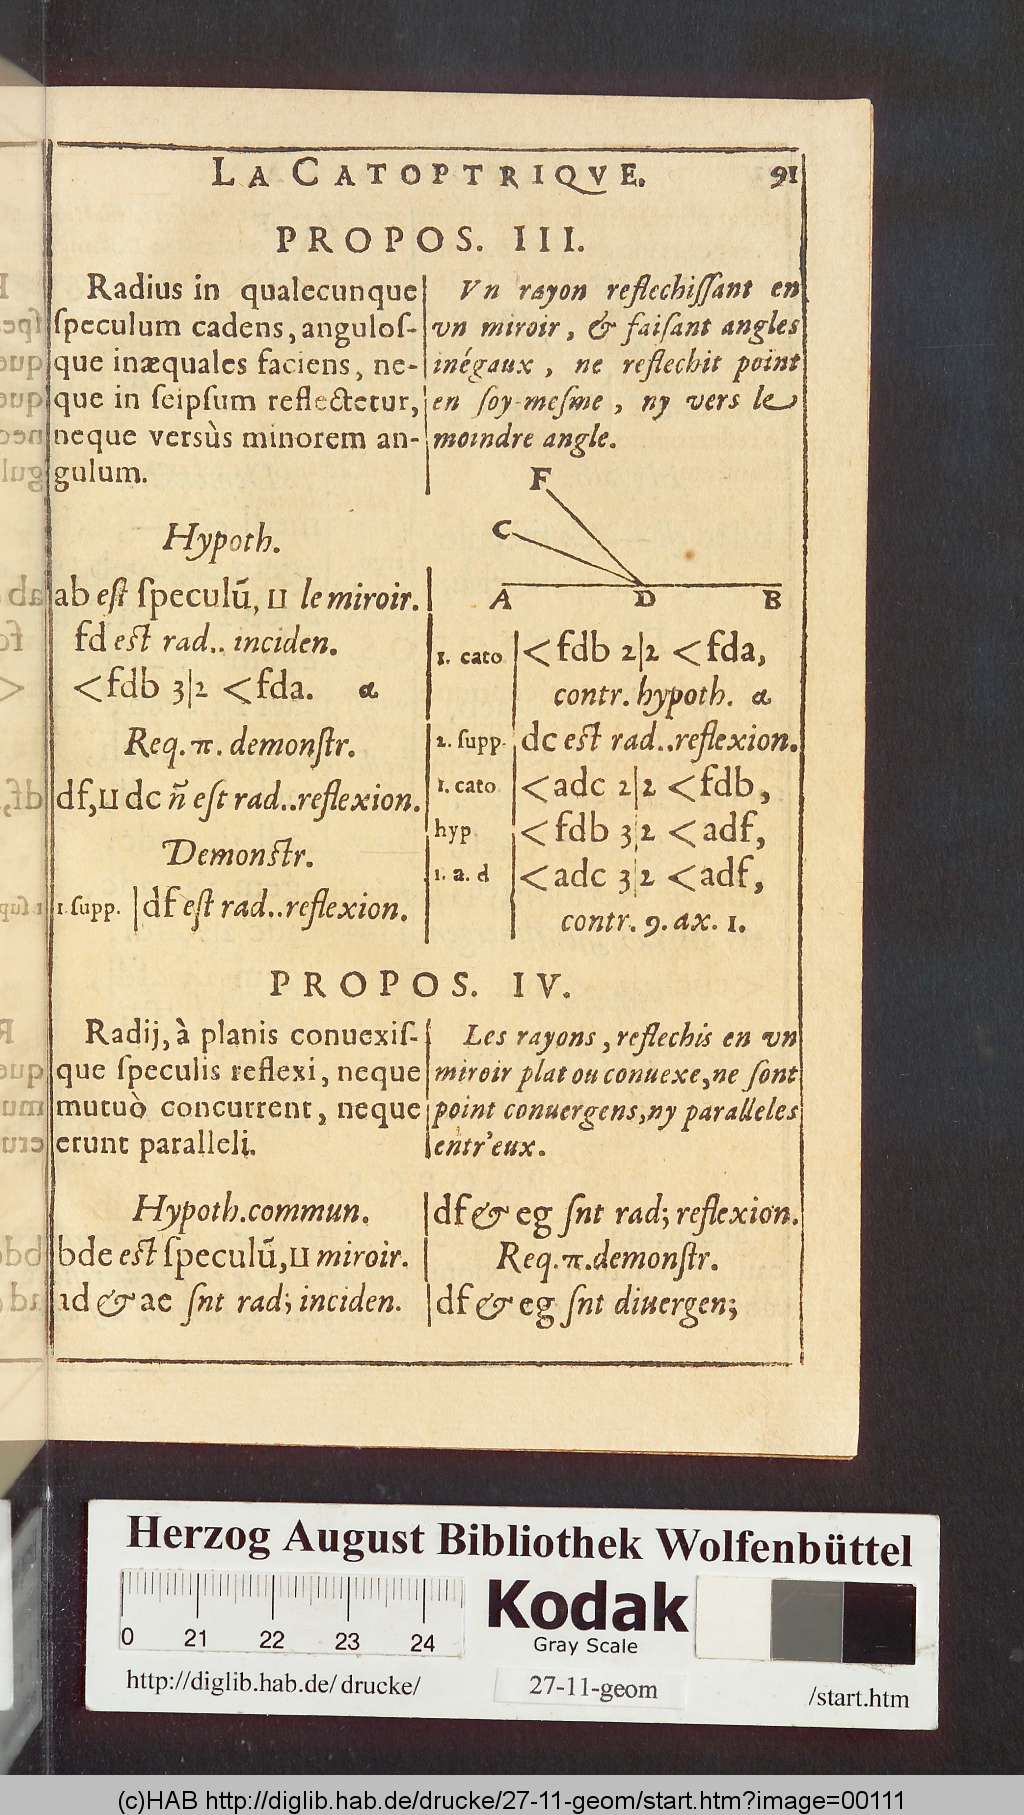 LA CATOPTRIQVE. 91
PROPOS. III.
Radius in qualecunque
ſpeculum cadens, anguloſ-
que inæquales faciens, ne-
que in ſeipſum reflectetur,
neque versùs minorem an-
gulum.
Vn rayon reflechiſſant en
vn miroir, & faiſant angles
inégaux, ne reflechit point
en ſoy-meſme, ny vers le
moindre angle.
F
C
A D B
Hypoth.
ab eſt ſpeculū, ⊔ le miroir.
fd eſt rad.. inciden.
<fdb 3|2 <fda. α
Req. π. demonſtr.
df, ⊔ dc ñ eſt rad..reflexion.
Demonſtr.
1. ſupp. | df eſt rad..reflexion.
1. cato | <fdb 2|2 <fda,
contr. hypoth. α
2. ſupp. | dc eſt rad..reflexion.
1. cato | <adc 2|2 <fdb,
hyp | <fdb 3|2 <adf,
1. a. d | <adc 3|2 <adf,
contr. 9. ax. 1.
PROPOS. IV.
Radij, à planis conuexiſ-
que ſpeculis reflexi, neque
mutuò concurrent, neque
erunt paralleli.
Les rayons, reflechis en vn
miroir plat ou conuexe, ne ſont
point conuergens, ny paralleles
entr'eux.
Hypoth. commun.
bde eſt ſpeculū, ⊔ miroir.
ad & ae ſnt rad; inciden.
df & eg ſnt rad; reflexion.
Req. π. demonſtr.
df & eg ſnt diuergen;
Herzog August Bibliothek Wolfenbüttel
0 21 22 23 24
Kodak
Gray Scale
http://diglib.hab.de/drucke/ 27-11-geom /start.htm
(c)HAB http://diglib.hab.de/drucke/27-11-geom/start.htm?image=00111